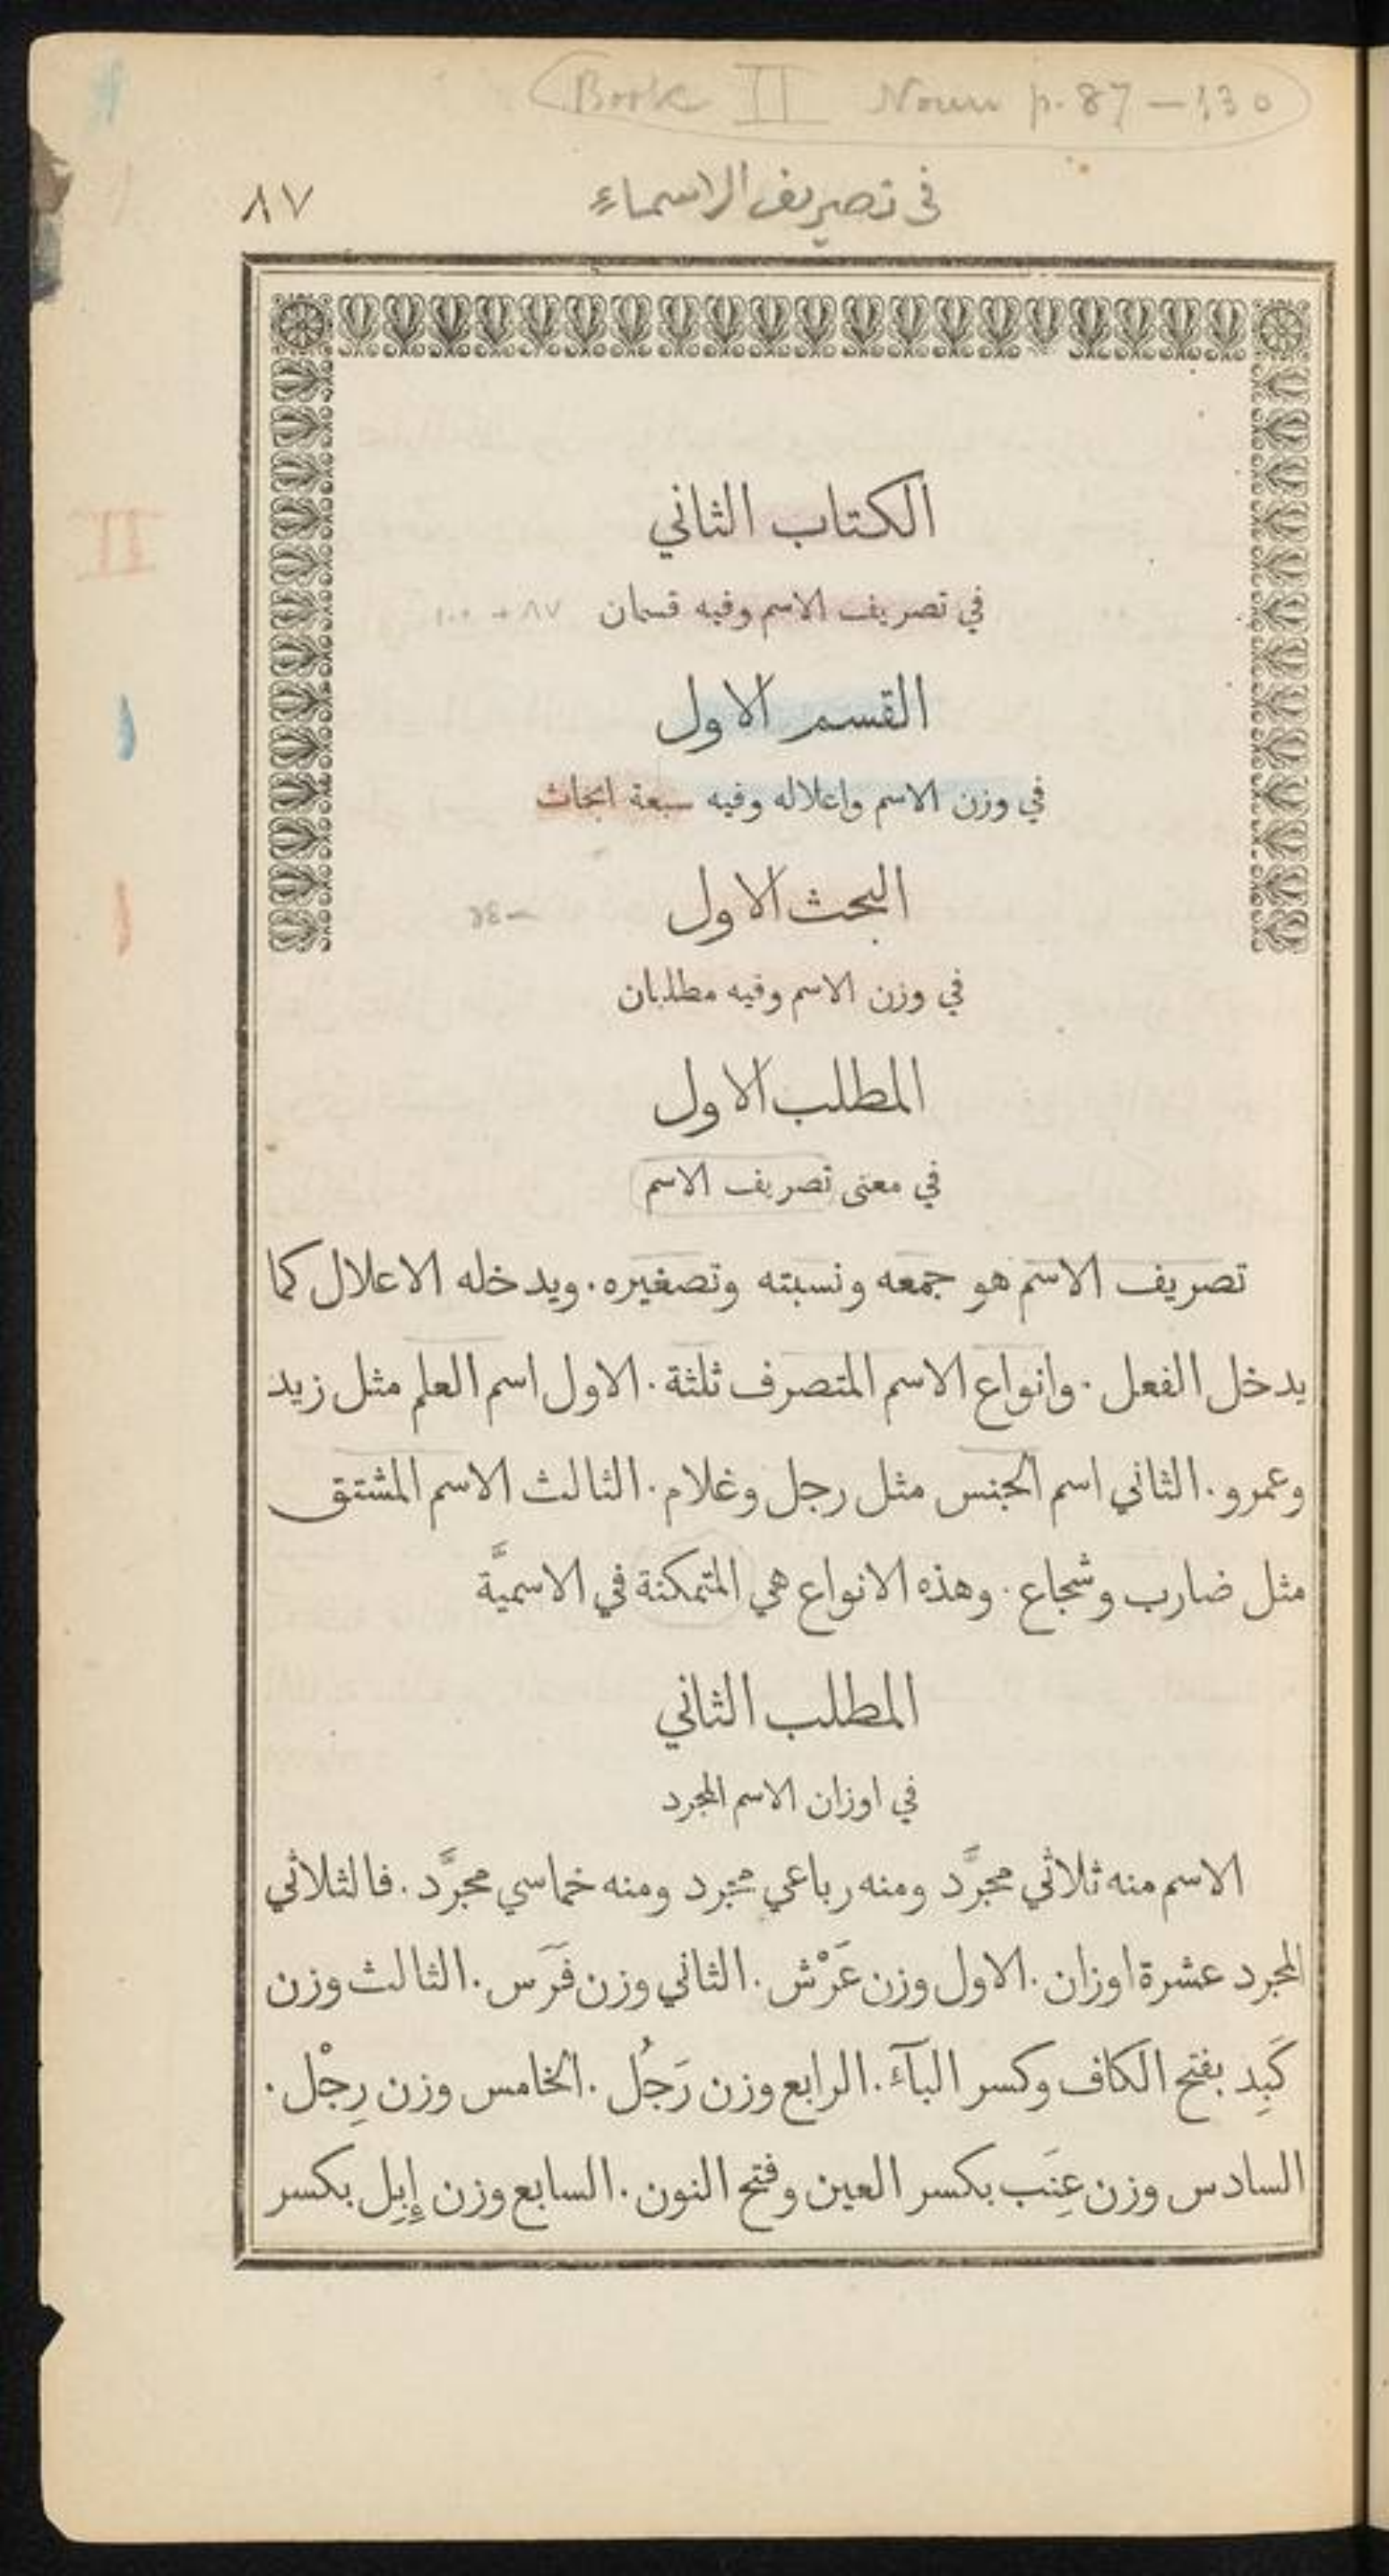 Book II Noun p. 87 – 130
في تصريف الاسماء ٨٧
الكتاب الثاني
في تصريف الاسم وفيه قسمان ٨٧ - ١٠٠
القسم الاول
في وزن الاسم واعلاله وفيه سبعة ابحاث
البحث الاول
في وزن الاسم وفيه مطلبان
المطلب الاول
في معنى تصريف الاسم
تصريف الاسم هو جمعه ونسبته وتصغيره. ويدخله الاعلال كما
يدخل الفعل. وانواع الاسم المتصرف ثلثة. الاول اسم العلم مثل زيد
وعمرو. الثاني اسم الجنس مثل رجل وغلام. الثالث الاسم المشتق
مثل ضارب وشجاع. وهذه الانواع هي المتمكنة في الاسميَّة
المطلب الثاني
في اوزان الاسم المجرد
الاسم منه ثلاثي مجرَّد ومنه رباعي مجرد ومنه خماسي مجرَّد. فالثلاثي
المجرد عشرة اوزان. الاول وزن عَرْش. الثاني وزن فَرَس. الثالث وزن
كَبِد بفتح الكاف وكسر البآء. الرابع وزن رَجُل. الخامس وزن رِجْل.
السادس وزن عِنَب بكسر العين وفتح النون. السابع وزن إِبِل بكسر
II